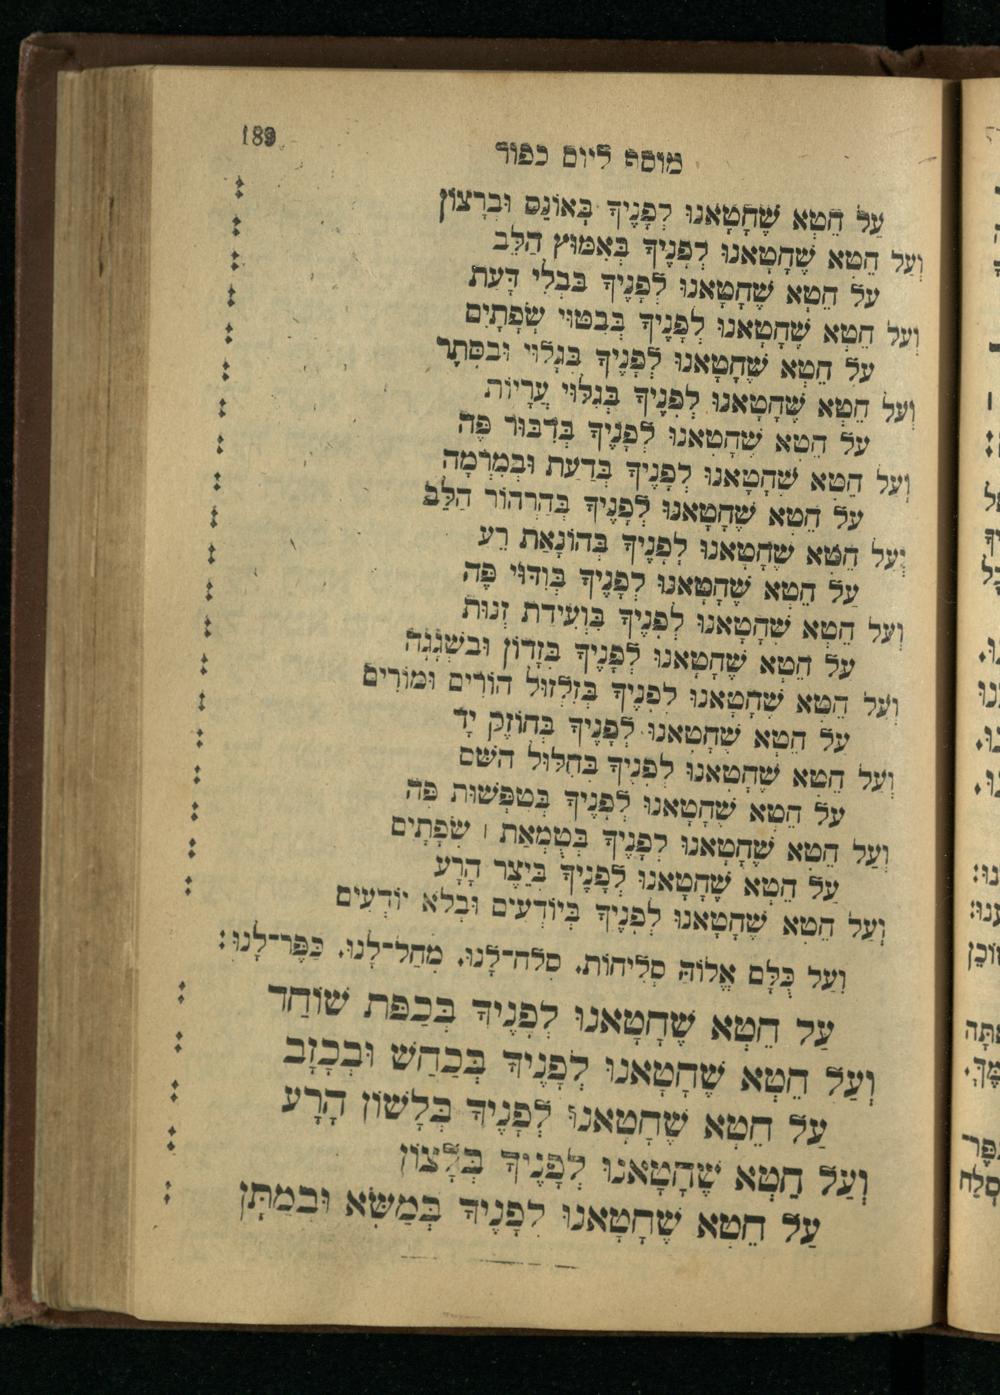 189
מוסף ליום כפור
עַל חֵטְא שֶׁחָטָאנוּ לְפָנֶיךָ בְּאוֹנֶס וּבְרָצוֹן
וְעַל חֵטְא שֶׁחָטָאנוּ לְפָנֶיךָ בְּאִמּוּץ הַלֵּב
עַל חֵטְא שֶׁחָטָאנוּ לְפָנֶיךָ בִּבְלִי דָעַת
וְעַל חֵטְא שֶׁחָטָאנוּ לְפָנֶיךָ בְּבִטּוּי שְׂפָתָיִם
עַל חֵטְא שֶׁחָטָאנוּ לְפָנֶיךָ בְּגָלוּי וּבַסָּתֶר
וְעַל חֵטְא שֶׁחָטָאנוּ לְפָנֶיךָ בְּגִלּוּי עֲרָיוֹת
עַל חֵטְא שֶׁחָטָאנוּ לְפָנֶיךָ בְּדִבּוּר פֶּה
וְעַל חֵטְא שֶׁחָטָאנוּ לְפָנֶיךָ בְּדַעַת וּבְמִרְמָה
עַל חֵטְא שֶׁחָטָאנוּ לְפָנֶיךָ בְּהִרְהוֹר הַלֵּב
וְעַל חֵטְא שֶׁחָטָאנוּ לְפָנֶיךָ בְּהוֹנָאַת רֵעַ
עַל חֵטְא שֶׁחָטָאנוּ לְפָנֶיךָ בְּוִדּוּי פֶּה
וְעַל חֵטְא שֶׁחָטָאנוּ לְפָנֶיךָ בִּוְעִידַת זְנוּת
עַל חֵטְא שֶׁחָטָאנוּ לְפָנֶיךָ בְּזָדוֹן וּבִשְׁגָגָה
וְעַל חֵטְא שֶׁחָטָאנוּ לְפָנֶיךָ בְּזִלְזוּל הוֹרִים וּמוֹרִים
עַל חֵטְא שֶׁחָטָאנוּ לְפָנֶיךָ בְּחוֹזֶק יָד
וְעַל חֵטְא שֶׁחָטָאנוּ לְפָנֶיךָ בְּחִלּוּל הַשֵּׁם
עַל חֵטְא שֶׁחָטָאנוּ לְפָנֶיךָ בְּטִפְּשׁוּת פֶּה
וְעַל חֵטְא שֶׁחָטָאנוּ לְפָנֶיךָ בְּטֻמְאַת שְׂפָתָיִם
עַל חֵטְא שֶׁחָטָאנוּ לְפָנֶיךָ בְּיֵצֶר הָרָע
וְעַל חֵטְא שֶׁחָטָאנוּ לְפָנֶיךָ בְּיוֹדְעִים וּבְלֹא יוֹדְעִים
וְעַל כֻּלָּם אֱלוֹהַּ סְלִיחוֹת. סְלַח־לָנוּ. מְחַל־לָנוּ. כַּפֶּר־לָנוּ:
עַל חֵטְא שֶׁחָטָאנוּ לְפָנֶיךָ בְּכַפַּת שׁוֹחַד
וְעַל חֵטְא שֶׁחָטָאנוּ לְפָנֶיךָ בְּכַחַשׁ וּבְכָזָב
עַל חֵטְא שֶׁחָטָאנוּ לְפָנֶיךָ בְּלָשׁוֹן הָרָע
וְעַל חֵטְא שֶׁחָטָאנוּ לְפָנֶיךָ בְּלָצוֹן
עַל חֵטְא שֶׁחָטָאנוּ לְפָנֶיךָ בְּמַשָּׂא וּבְמַתָּן